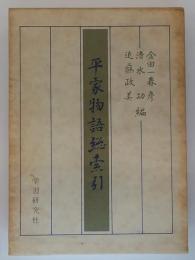 金田一春彦
清水功編
近藤政美
平家物語總索引
学習研究社